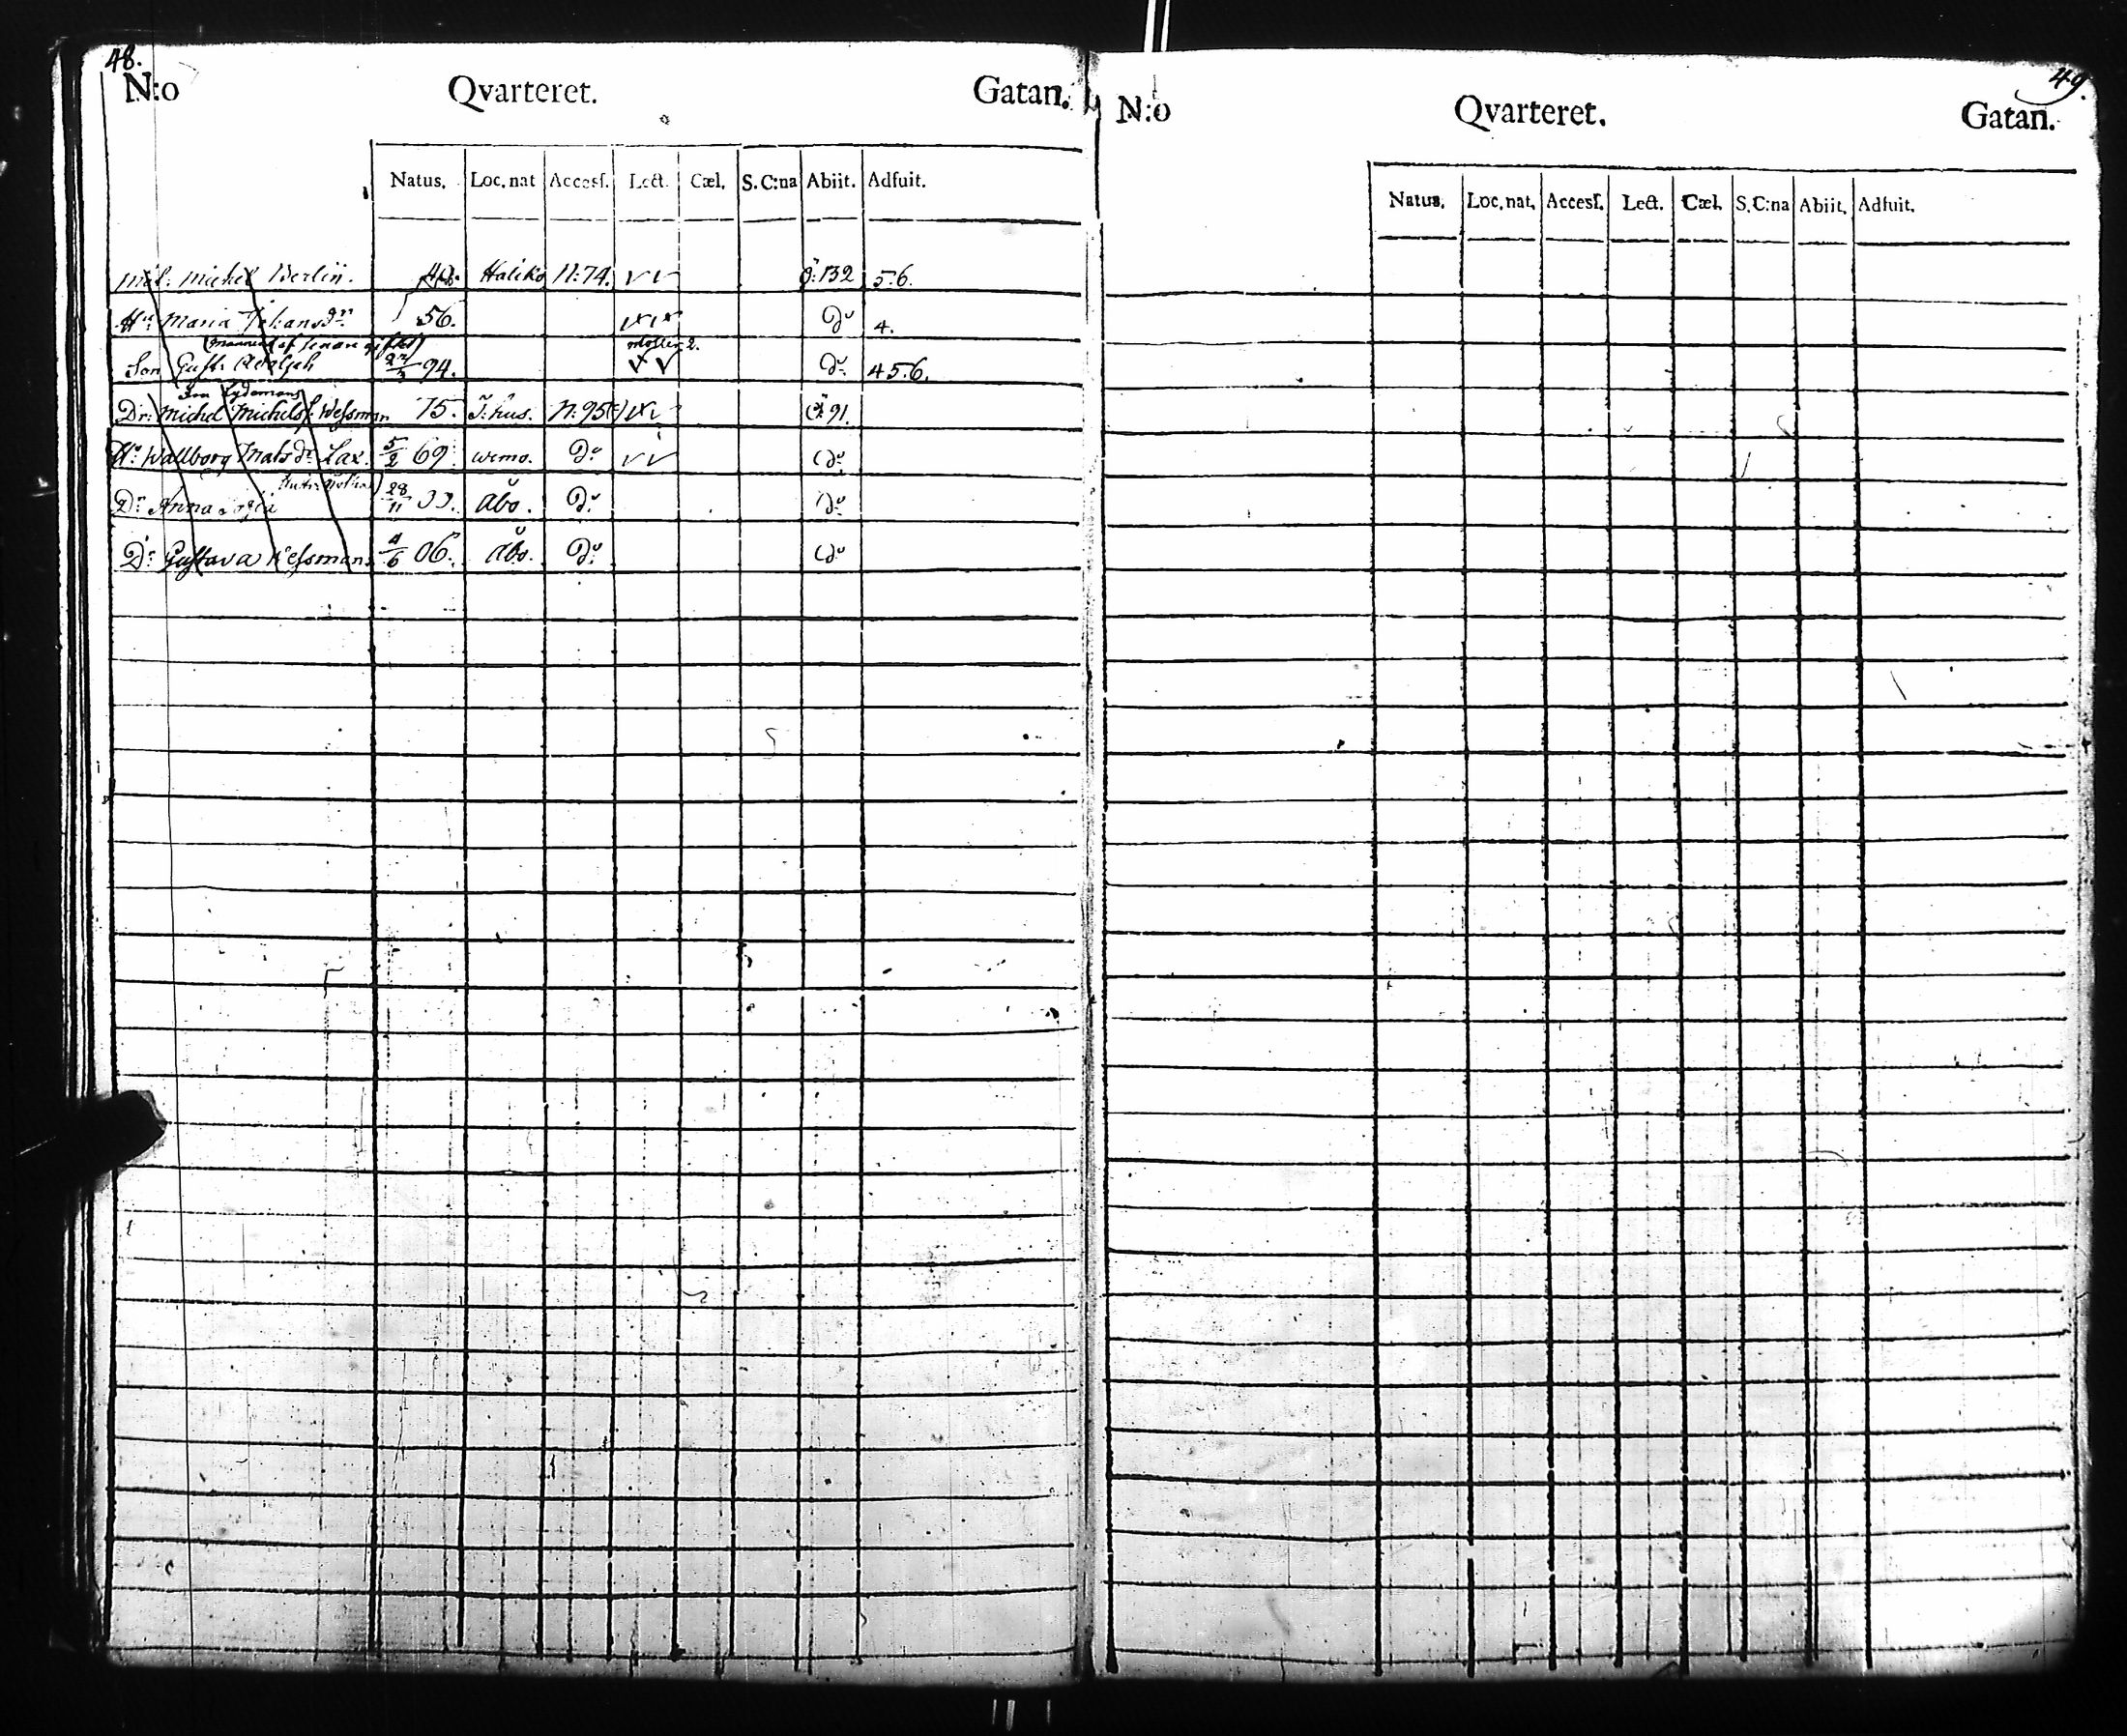 48.
N:o Qvarteret. Gatan.
Natus. Loc. nat Access. Lect. Cæl. S. C:na Abiit. Adfuit.
Michel Berlin. Haliko N:74. 132 5.6.
Hu Maria Johansdr 56. Do 4.
Son Gust. Adolph 27/3 94. Do 4 5.6.
Dr: Michel Michelss. Wessman 75. T:hus. N:95 91.
Hu Wallborg Matsdr Lax. 5/2 69. wemo. Do Do
Dr Anna 28/11 Åbo. Do Do
Dr Gustava Wessmans 4/6 06. Åbo. Do Do
49.
N:o Qvarteret. Gatan.
Natus. Loc. nat. Access. Lect. Cæl. S. C:na Abiit. Adfuit.